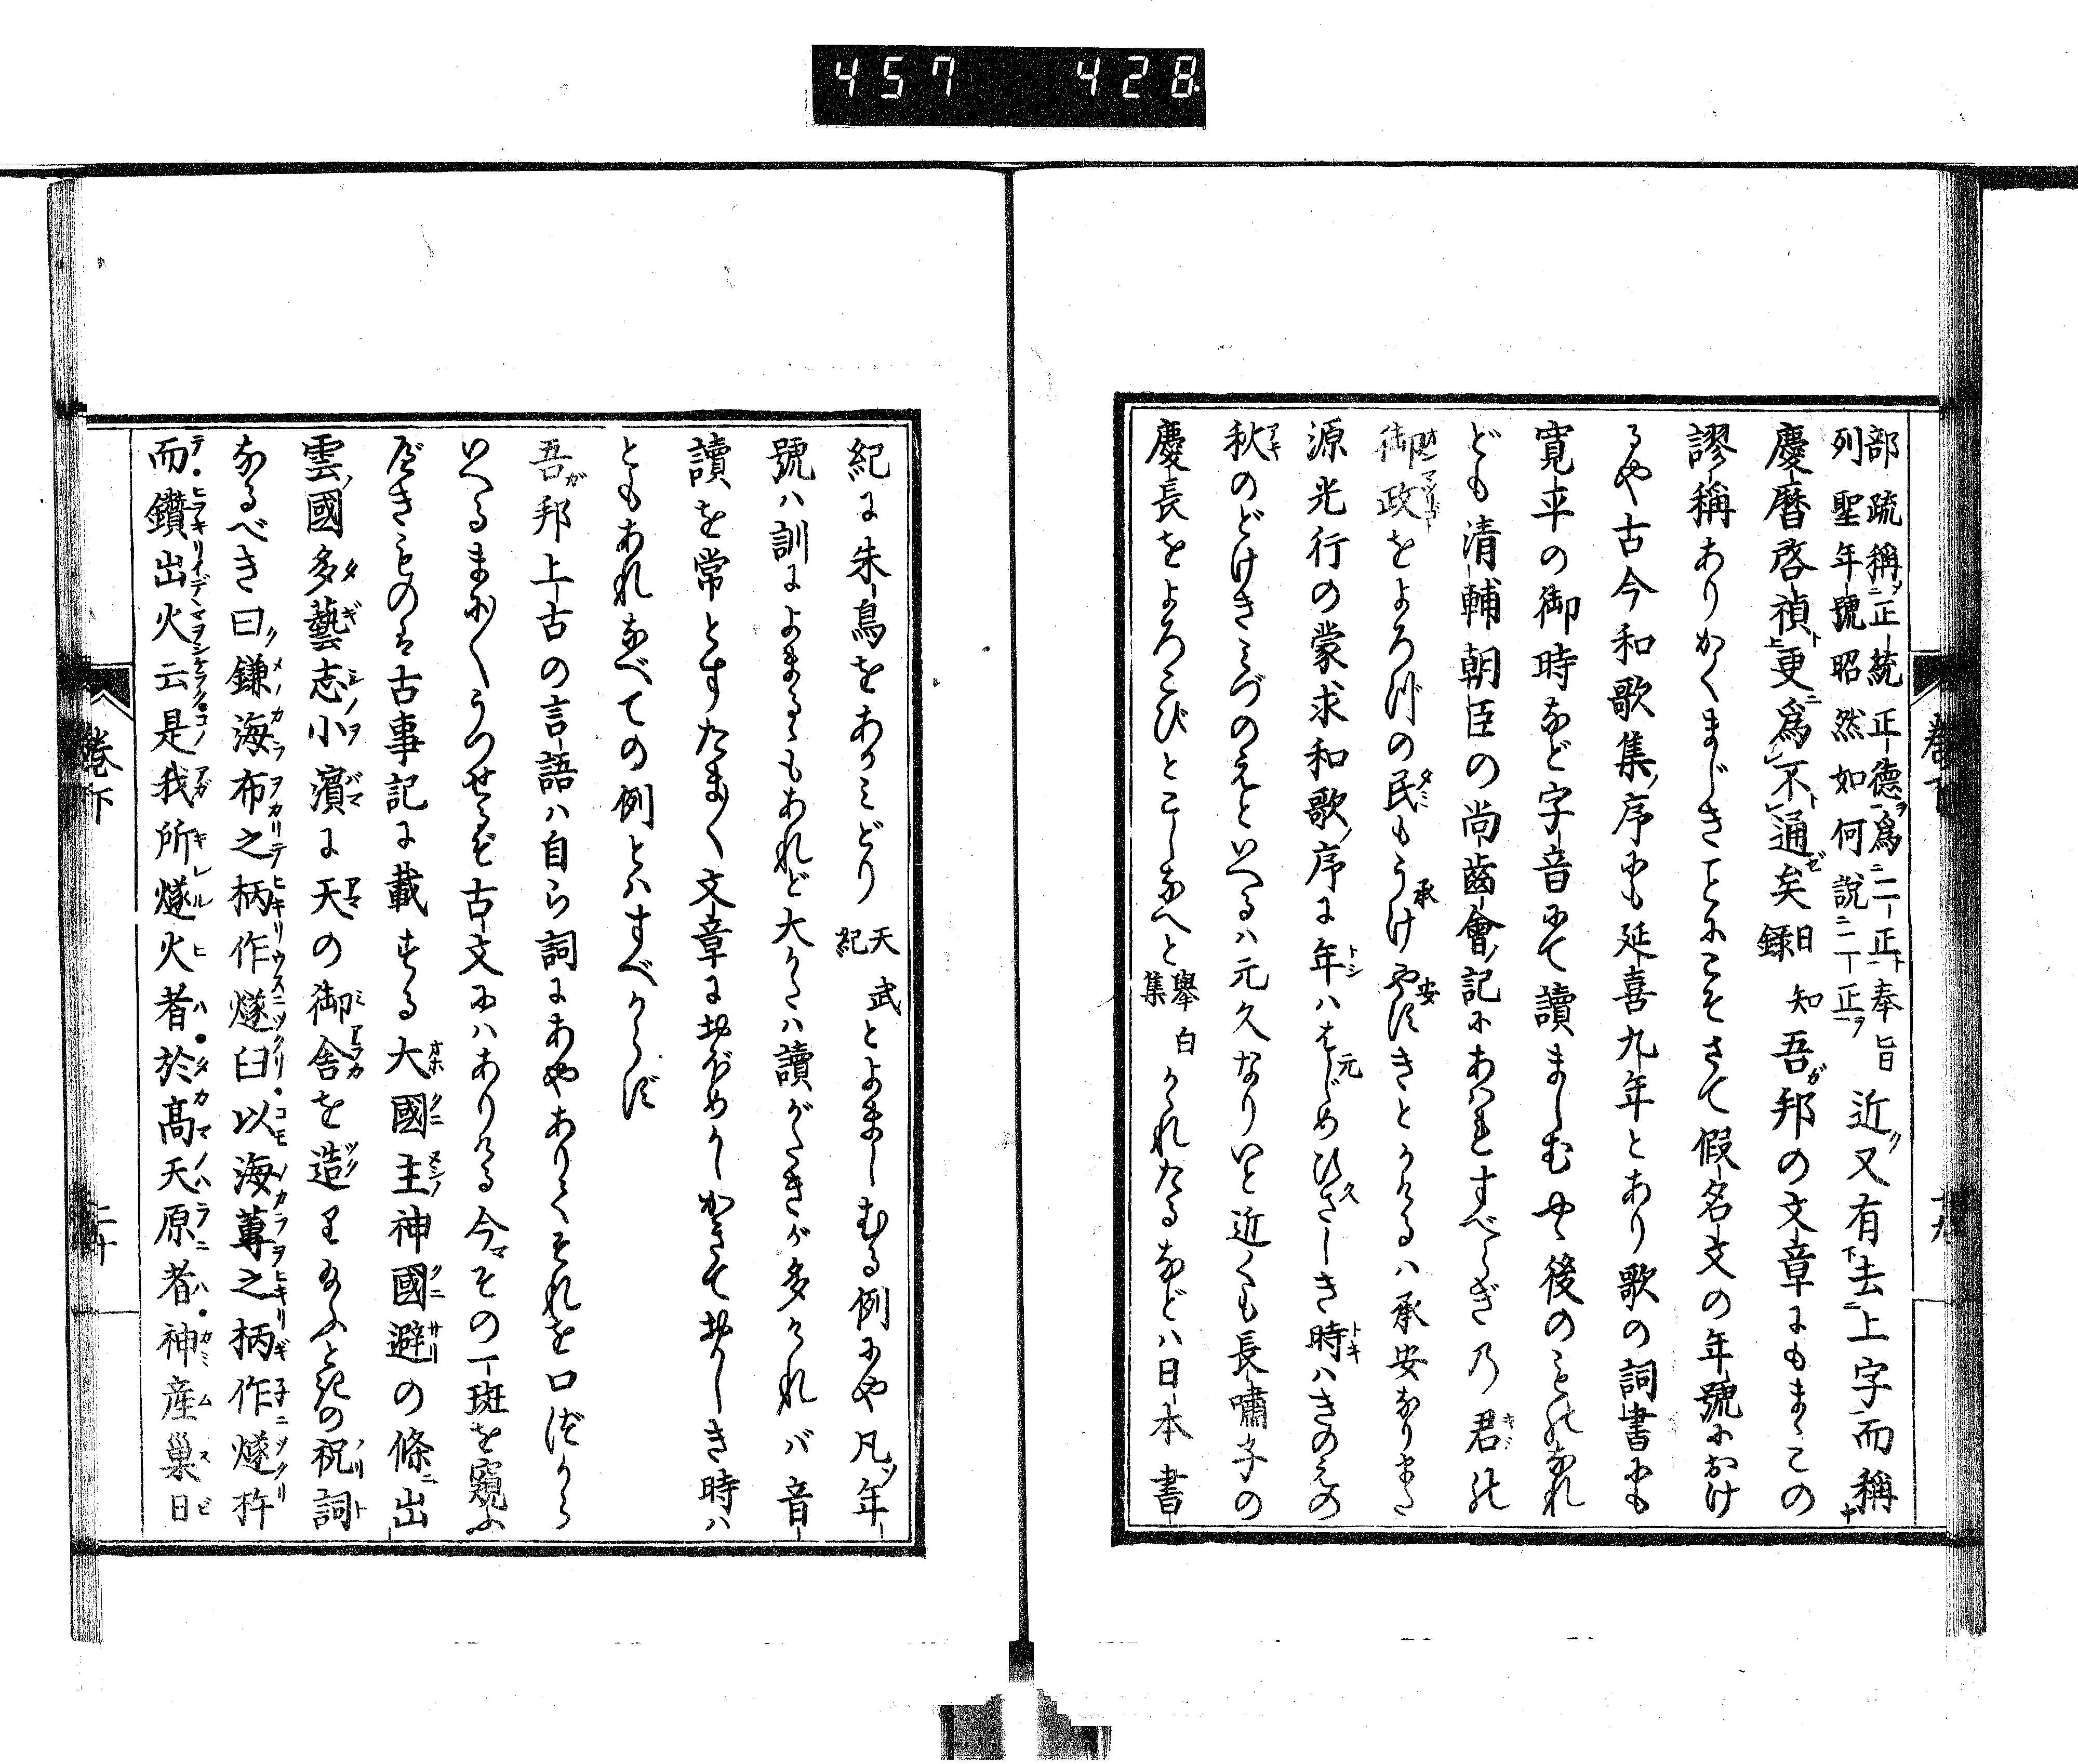 457 428
部疏稱正統正德爲二正奉旨
列聖年號昭然如何説二正
近又有去上字而稱
慶暦啓禎更爲不通矣
日知録
吾邦の文章にもまゝこの
謬稱ありかくまじきことにこそさて假名文の年號におけ
るや古今和歌集ノ序にも延喜九年とあり歌の詞書にも
寛平の御時など字音にて讀ましむ
後のものなれ
ども清輔朝臣の尚齒會ノ記にあハれすべらぎ乃君の
御政をよろづの民もうけやすきとかけるハ承安なりまた
源光行の蒙求和歌ノ序に年ハはじめひさしき時ハきのえの
秋のどけきみづのえといへるハ元久なりいと近くも長嘯子の
慶長をよろこびとこしなへと
擧白集
かゝれたるなどハ日本書
卷下
十九
紀に朱鳥をあかみどり
天武紀
とよましむる例にや凡ソ年
號ハ訓によまるゝもあれど大かたハ讀がたきが多かれバ音
讀を常とすたま〱文章に古めかしかきて
時ハ
ともあれなべての例とハすべからず
吾邦上古の言語ハ自ら詞にあやありてそれを口づから
いへるまゝ
うつせるぞ古文にハありける今その一斑を窺ふ
べきものは古事記に載する大國主神國避の條ニ出
雲ノ國多藝志小濱に天の御舍を造り
の祝詞
なるべき曰ク鎌海布之柄作燧臼以海蓴之柄作燧杵
而鑽出火云是我所燧火者於高天原者神産巣日
卷下
二十